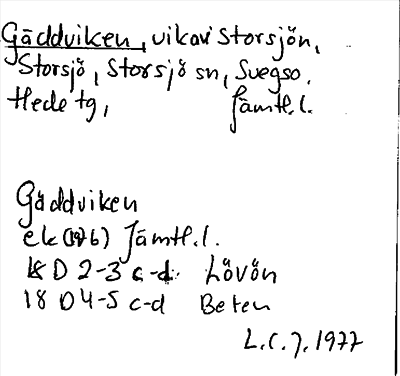 Gäddviken, vik av Storsjön,
Storsjö, Storsjö sn, Svegs o.
Hede tg, Jämtl.l.
Gäddviken
ek (1976) Jämtl.l.
18 D 2-3 c-d Lövön
18 D 4-5 c-d Beten
L.C.J. 1977